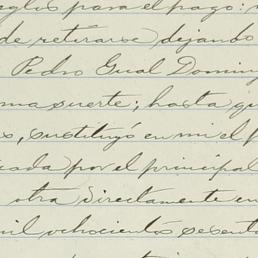 eglis para el pago:
de retirarse dejando
Pedro Gual Doming
ma suerte; hasta qu
s, sustituyó en mi el p
cada por el principal
otra directamente en
mil ochocientos sesenta